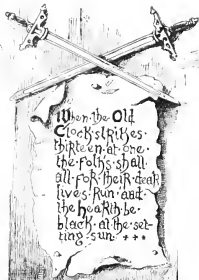 When·the·Old
Clock·strikes·
thirteen·at·one·
·the·folks·shall·
all·for·their·dear
lives·Run·and·
the·hearth·be·
black·at·the·set-
ting·sun·